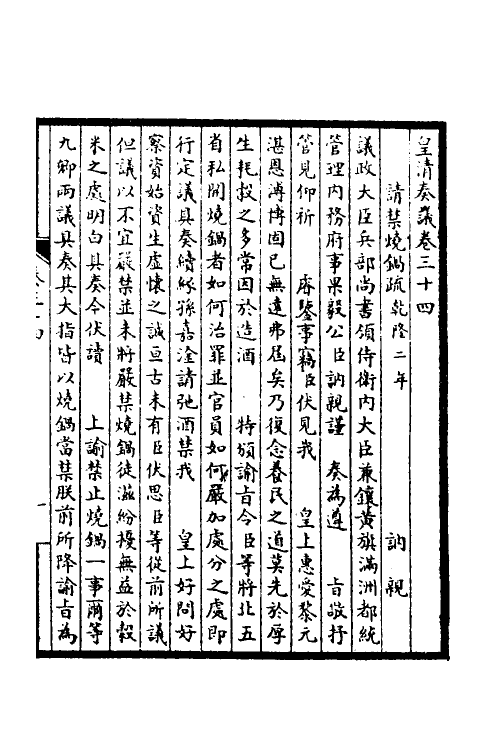 皇清奏議卷三十四
請禁燒鍋疏乾隆二年 訥親
議政大臣兵部尚書領侍衛內大臣兼鑲黃旗滿洲都統
管理內務府事果毅公臣訥親謹 奏為遵 旨敬抒
管見仰祈 睿鑒事竊臣伏見我 皇上惠愛黎元
湛恩溥博固已無遠弗屆矣乃復念養民之道莫先於厚
生耗穀之多常因於造酒 特頒諭旨今臣等將北五
省私開燒鍋者如何治罪並官員如何嚴加處分之處即
行定議具奏續經孫嘉淦請弛酒禁我 皇上好問好
察資始資生虛懷之誠亘古未有臣伏思臣等從前所議
但議以不宜嚴禁並未將嚴禁燒鍋徒滋紛擾無益於穀
米之處明白具奏今伏讀 上諭禁止燒鍋一事爾等
九卿兩議具奏其大指皆以燒鍋當禁朕前所降諭旨為